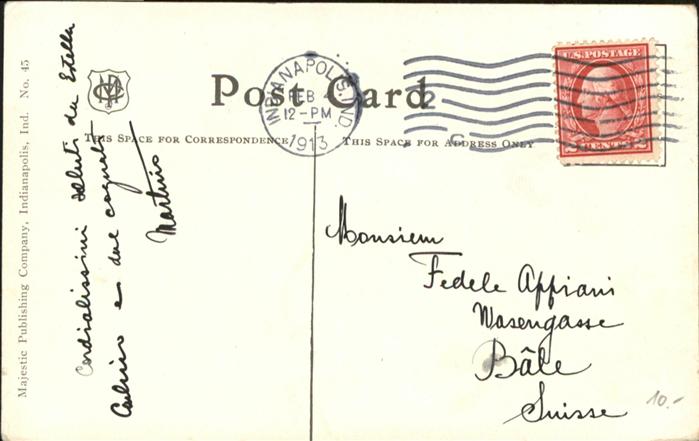 Post Card
THIS SPACE FOR CORRESPONDENCE
THIS SPACE FOR ADDRESS ONLY
INDIANAPOLIS, IND.
FEB
12-PM
1913
2
U.S. POSTAGE
CENTS
Majestic Publishing Company, Indianapolis, Ind. No. 45
Cordialissimi saluti da Estella
e due cognati
Martino
Monsieur
Fedele Appiani
Wasengasse
Bâle
Suisse
10.-